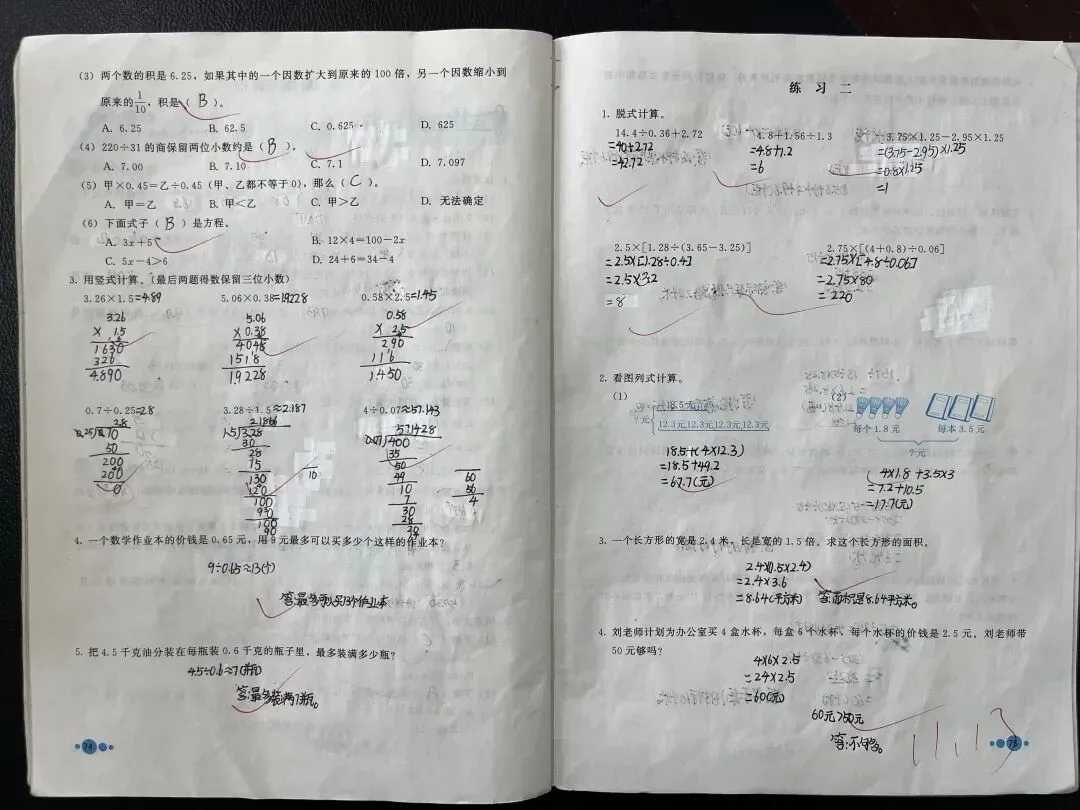 (3) 两个数的积是 6.25，如果其中的一个因数扩大到原来的 100 倍，另一个因数缩小到
原来的1/10，积是( B )。
A. 6.25 B. 62.5 C. 0.625 D. 625
(4) 220÷31 的商保留两位小数约是( B )。
A. 7.00 B. 7.10 C. 7.1 D. 7.097
(5) 甲×0.45=乙÷0.45 (甲、乙都不等于 0)，那么( C )。
A. 甲=乙 B. 甲<乙 C. 甲>乙 D. 无法确定
(6) 下面式子( B )是方程。
A. 3x+5 B. 12×4=100-2x
C. 5x-4>6 D. 24+6=34-4
3. 用竖式计算。(最后两题得数保留三位小数)
3.26×1.5=4.89 5.06×0.38=1.9228 0.58×2.5=1.45
3.26 5.06 0.58
× 1.5 × 0.38 × 2.5
1630 4048 290
326 1518 116
4.890 1.9228 1.450
0.7÷0.25=2.8 3.28÷1.5≈2.187 4÷0.07≈57.143
2.8 2.1866 57.1428
0.25)0.70 1.5)3.28 0.07)400
50 30 35
200 28 50
200 15 49
0 130 10
120 7
100 30
90 28
100 20
90
10
60
56
4
4. 一个数学作业本的价钱是 0.65 元，用 9 元最多可以买多少个这样的作业本？
9÷0.65≈13(个)
答:最多可以买13个作业本
5. 把 4.5 千克油分装在每瓶装 0.6 千克的瓶子里，最多装满多少瓶？
4.5÷0.6≈7(瓶)
答:最多装满7瓶。
74
练 习 二
1. 脱式计算。
14.4÷0.36+2.72 4.8+1.56÷1.3 3.75×1.25-2.95×1.25
=40+2.72 =4.8+1.2 =(3.75-2.95)×1.25
=42.72 =6 =0.8×1.25
=1
2.5×[1.28÷(3.65-3.25)] 2.75×[(4+0.8)÷0.06]
=2.5×[1.28÷0.4] =2.75×[4.8÷0.06]
=2.5×3.2 =2.75×80
=8 =220
2. 看图列式计算。
(1) (2)
18.5元
?元
12.3元12.3元12.3元12.3元
每个 1.8 元 每本 3.5 元
?元
18.5+(4×12.3)
=18.5+49.2
=67.7(元)
4×1.8+3.5×3
=7.2+10.5
=17.7(元)
3. 一个长方形的宽是 2.4 米，长是宽的 1.5 倍。求这个长方形的面积。
2.4×(1.5×2.4)
=2.4×3.6
=8.64(平方米) 答:面积是8.64平方米。
4. 刘老师计划为办公室买 4 盒水杯，每盒 6 个水杯，每个水杯的价钱是 2.5 元。刘老师带
50 元够吗？
4×6×2.5
=24×2.5
=60(元)
60元>50元
答:不够。
11.13
75